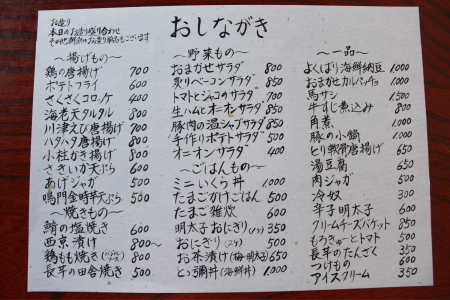 おしながき
お造り
本日のお造り盛り合わせ
その他鮮魚のお造り単品もございます
〜揚げもの〜
鶏の唐揚げ 700
ポテトフライ 600
さくさくコロッケ 400
海老天タルタル 800
川津えび唐揚げ 700
ハタハタ唐揚げ 800
小柱かき揚げ 500
ささいか天ぷら 600
あげジャガ 500
鳴門金時芋天ぷら 500
〜焼きもの〜
鯖の塩焼き 600
西京漬け 800〜
鶏もも焼き 500
長芋の田舎焼き 500
〜野菜もの〜
おまかせサラダ 800
炙りベーコンサラダ 850
トマトとジャコのサラダ 700
生ハムとオニオンサラダ 850
豚肉の温シャブサラダ 850
手作りポテトサラダ 500
オニオンサラダ 400
〜ごはんもの〜
ミニいくら丼 1,000
たまごかけごはん 500
たまご雑炊 600
明太子おにぎり(1ヶ) 350
おにぎり(2ヶ) 500
お茶漬け(梅・明太子) 650
とっ彌丼(海鮮丼) 1,000
〜一品〜
よくばり海鮮納豆 1,000
おまかせカルパッチョ 1,000
馬サシ 1,500
牛すじ煮込み 800
角煮 1,000
豚の小鍋 1,000
ヒリ軟骨唐揚げ 650
湯豆腐 650
肉ジャガ 500
冷奴 300
辛子明太子 600
クリームチーズバケット 850
もろきゅーとトマト 500
長芋のたんざく 350
つけもの 600
アイスクリーム 350